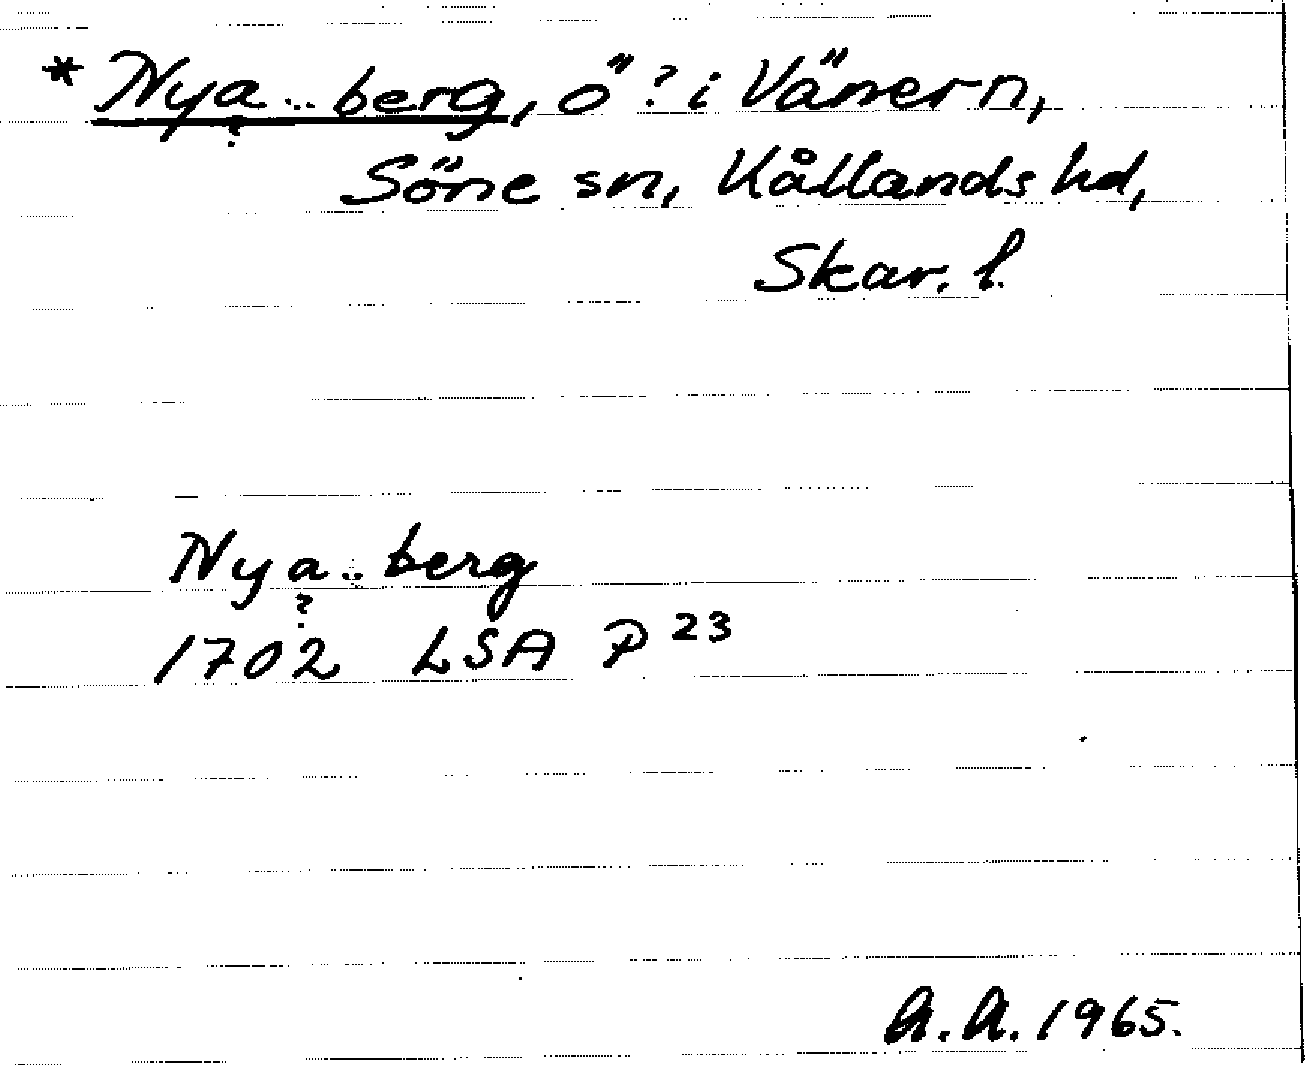 * Nya..berg, ö? i Vänern,
?
Söne sn, Kållands hd,
Skar. l.
Nya..berg
?
1702 LSA P 23
A.A. 1965.